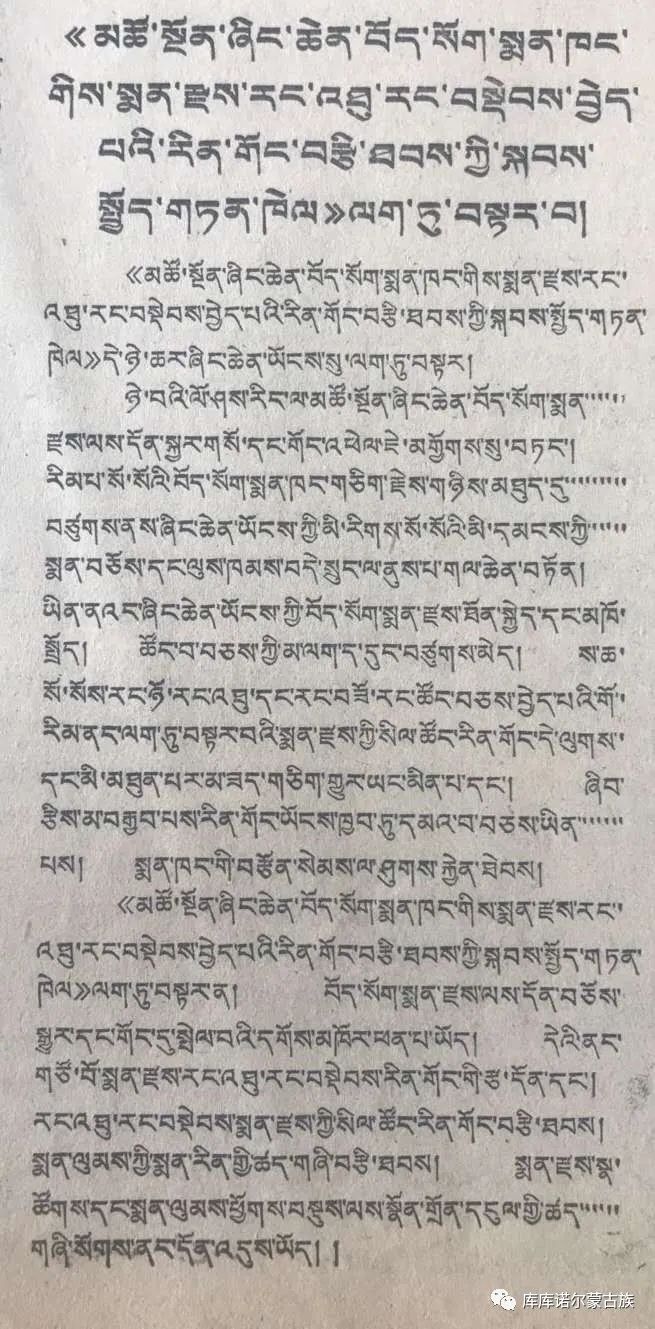 《མཚོ་སྔོན་ཞིང་ཆེན་བོད་སོག་སྨན་ཁང་
གིས་སྨན་རྫས་རང་འཐུ་རང་བསྡེབས་བྱེད་
པའི་རིན་གོང་བརྩི་ཐབས་ཀྱི་སྐབས་
སྤྱོད་གཏན་ཁེལ》ལག་ཏུ་བསྟར་བ།
《མཚོ་སྔོན་ཞིང་ཆེན་བོད་སོག་སྨན་ཁང་གིས་སྨན་རྫས་རང་
འཐུ་རང་བསྡེབས་བྱེད་པའི་རིན་གོང་བརྩི་ཐབས་ཀྱི་སྐབས་སྤྱོད་གཏན་
ཁེལ》དེ་ཉེ་ཆར་ཞིང་ཆེན་ཡོངས་སུ་ལག་ཏུ་བསྟར།
ཉེ་བའི་ལོ་ཤས་རིང་ལ་མཚོ་སྔོན་ཞིང་ཆེན་བོད་སོག་སྨན་
རྫས་ལས་དོན་སྐྱར་གསོ་དང་གོང་འཕེལ་ཇེ་མགྱོགས་སུ་བཏང་།
རིམ་པ་སོ་སོའི་བོད་སོག་སྨན་ཁང་གཅིག་རྗེས་གཉིས་མཐུད་དུ་
བཙུགས་ནས་ཞིང་ཆེན་ཡོངས་ཀྱི་མི་རིགས་སོ་སོའི་མི་དམངས་ཀྱི་
སྨན་བཅོས་དང་ལུས་ཁམས་བདེ་སྲུང་ལ་ནུས་པ་གལ་ཆེན་བཏོན།
ཡིན་ནའང་ཞིང་ཆེན་ཡོངས་ཀྱི་བོད་སོག་སྨན་རྫས་ཐོན་སྐྱེད་དང་མཁོ་
སྤྲོད། ཚོང་བ་བཅས་ཀྱི་མ་ལག་ད་དུང་བཙུགས་མེད། ས་ཆ་
སོ་སོས་རང་ཉོ་རང་འཐུ་དང་རང་བཟོ་རང་ཚོང་བཅས་བྱེད་པའི་གོ་
རིམ་ནང་ལག་ཏུ་བསྟར་བའི་སྨན་རྫས་ཀྱི་སིལ་ཚོང་རིན་གོང་དེ་ལུགས་
དང་མི་མཐུན་པར་མ་ཟད་གཅིག་གྱུར་ཡང་མིན་པ་དང་། ཞིབ་
རྩིས་མ་བརྒྱབ་པས་རིན་གོང་ཡོངས་ཁྱབ་ཏུ་དམའ་བ་བཅས་ཡིན་
པས། སྨན་ཁང་གི་བརྩོན་སེམས་ལ་ཤུགས་རྐྱེན་ཐེབས།
《མཚོ་སྔོན་ཞིང་ཆེན་བོད་སོག་སྨན་ཁང་གིས་སྨན་རྫས་རང་
འཐུ་རང་བསྡེབས་བྱེད་པའི་རིན་གོང་བརྩི་ཐབས་ཀྱི་སྐབས་སྤྱོད་གཏན་
ཁེལ》ལག་ཏུ་བསྟར་ན། བོད་སོག་སྨན་རྫས་ལས་དོན་བཅོས་
སྒྱུར་དང་གོང་དུ་སྤེལ་བའི་དགོས་མཁོར་ཕན་པ་ཡོད། དེའི་ནང་
གཙོ་བོ་སྨན་རྫས་རང་འཐུ་རང་བསྡེབས་རིན་གོང་གི་རྩ་དོན་དང་།
རང་འཐུ་རང་བསྡེབས་སྨན་རྫས་ཀྱི་སིལ་ཚོང་རིན་གོང་བརྩི་ཐབས།
སྨན་ལུམས་ཀྱི་སྨན་རིན་གྱི་ཚད་གཞི་བརྩི་ཐབས། སྨན་རྫས་སྣ་
ཚོགས་དང་སྨན་ལུམས་ཕྱོགས་བསྡུས་ལས་སྣོན་གྲོན་དངུལ་གྱི་ཚད་
གཞི་སོགས་ནང་དོན་འདུས་ཡོད། །
库库诺尔蒙古族